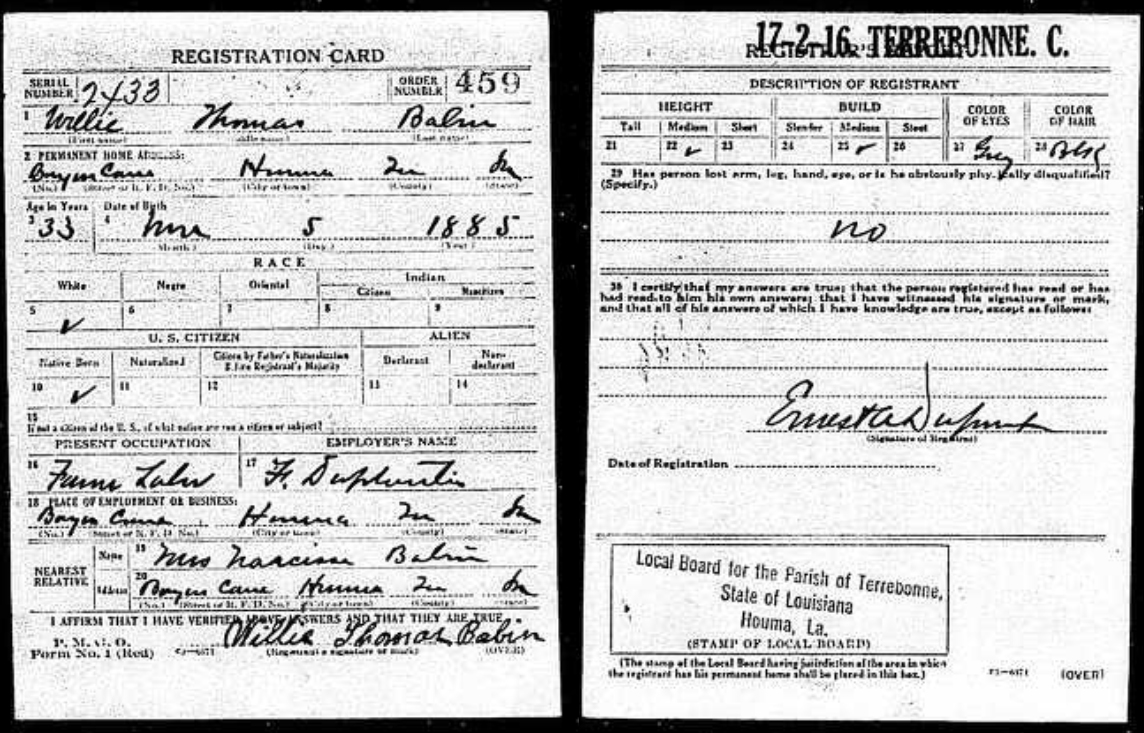 REGISTRATION CARD
SERIAL NUMBER 2433 ORDER NUMBER 459
1 Willie Thomas Babin
(First name) (Middle name) (Last name)
2 PERMANENT HOME ADDRESS:
Bayou Cane Houma La
(No.) (Street or R. F. D. No.) (City or town) (County) (State)
Age in Years Date of Birth
3 33 4 5 1885
(Month.) (Day.) (Year.)
RACE
White Negro Oriental Indian
Citizen Noncitizen
5 ✓ 6 7 8 9
U. S. CITIZEN ALIEN
Native Born Naturalized Citizen by Father's Naturalization Before Registrant's Majority Declarant Non-declarant
10 ✓ 11 12 13 14
15
If not a citizen of the U. S., of what nation are you a citizen or subject?
PRESENT OCCUPATION EMPLOYER'S NAME
16 Farm Labr 17 F. Duplantis
18 PLACE OF EMPLOYMENT OR BUSINESS:
Bayou Cane Houma La
(No.) (Street or R. F. D. No.) (City or town) (County) (State)
NEAREST RELATIVE
Name 19 Mrs Narcisse Babin
Address 20 Bayou Cane Houma La
(No.) (Street or R. F. D. No.) (City or town) (County) (State)
I AFFIRM THAT I HAVE VERIFIED ABOVE ANSWERS AND THAT THEY ARE TRUE
P. M. G. O.
Form No. 1 (Red) Willie Thomas Babin
(Registrant's signature or mark) (OVER)
17-2-16. TERREBONNE. C.
REGISTRAR'S REPORT
DESCRIPTION OF REGISTRANT
HEIGHT BUILD COLOR OF EYES COLOR OF HAIR
Tall Medium Short Slender Medium Stout
21 22 ✓ 23 24 25 ✓ 26 27 Grey 28 Blk
29 Has person lost arm, leg, hand, eye, or is he obviously physically disqualified?
(Specify.)
no
30 I certify that my answers are true; that the person registered has read or has
had read to him his own answers; that I have witnessed his signature or mark,
and that all of his answers of which I have knowledge are true, except as follows:
Ernest A Dupont
(Signature of Registrar)
Date of Registration
Local Board for the Parish of Terrebonne,
State of Louisiana
Houma, La.
(STAMP OF LOCAL BOARD)
(The stamp of the Local Board having jurisdiction of the area in which
the registrant has his permanent home shall be placed in this box.)
(OVER)